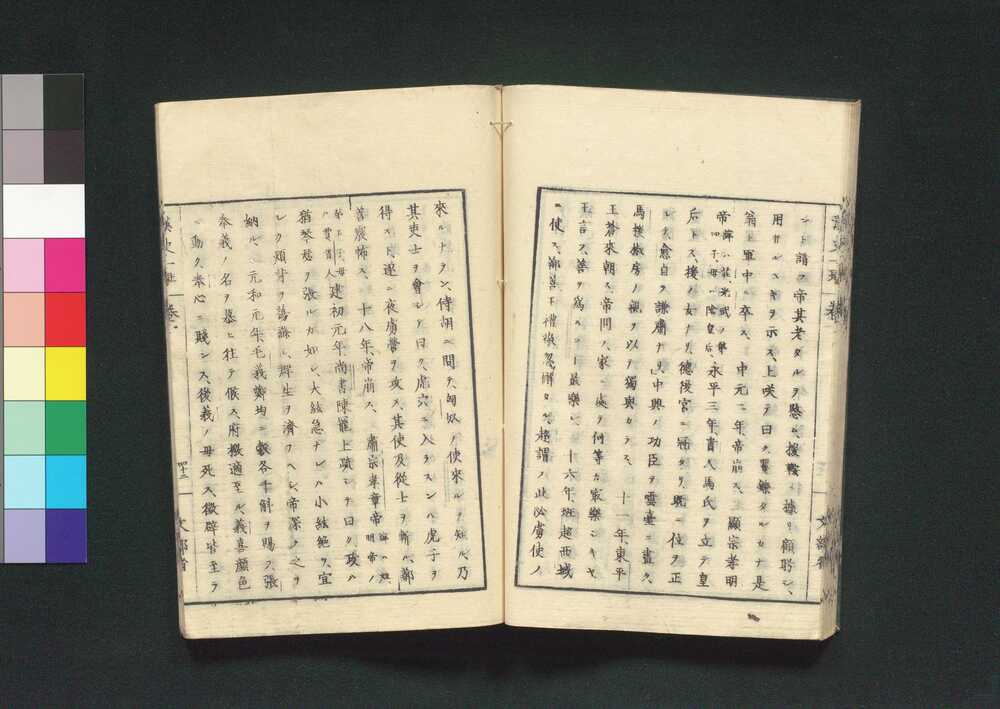 ント請フ帝其老タルヲ愍ム、援鞍ニ據リ顧眄シ、
用ヰルヘキヲ示ス、上咲テ曰ク、矍鑠タルカナ是
翁ト、軍中ニ卒ス、中元二年、帝崩ス、顯宗孝明
帝 諱ハ莊、光武ノ第四子、母ハ陰皇后、永平三年、貴人馬氏ヲ立テ皇
后トス、援ノ女ナリ、德後宮ニ冠タリ、既ニ位ヲ正
シク、愈自ラ謙肅ナリ、中興ノ功臣ヲ雲臺ニ畫ク、
馬援椒房ノ親ヲ以テ獨與カラス、十一年、東平
王蒼來朝ス、帝問フ、家ニ處リ何等カ最樂シキヤ、
王言フ、善ヲ爲ス 最樂シ、十六年、班超西域
ニ使ス、鄯善王禮敬忽懈タル、超謂フ此必虜使ノ
來ルナラン、侍胡ニ問ヲ、匈奴ノ使來ルヲ知ル、乃
其吏士ヲ會シテ曰ク、虎穴ニ入ラスンハ虎子ヲ
得スト、遂ニ夜虜營ヲ攻ス、其使及從士ヲ斬ル、鄯
善震怖ス、十八年、帝崩ス、肅宗孝章帝 諱ハ炟、明帝ノ
第 子、母ハ賈貴人 建初元年、尚書陳寵上疏シテ曰ク、政ハ
猶琴瑟ヲ張ルカ如シ、大絃急ナレハ小絃絕ツ、宜
シク煩苛ヲ蕩滌シ、群生ヲ濟フヘシ、帝深ク之ヲ
納ル、元和元年、毛義鄭均ニ穀各千斛ヲ賜フ、張
奉義ノ名ヲ慕ヒ往テ候ス、府檄適至ル、義喜顏色
ニ動ク、奉心ニ賤シス、後義ノ母死ス、徵辟皆至ラ
漢史一班 卷一
四十三
文部省